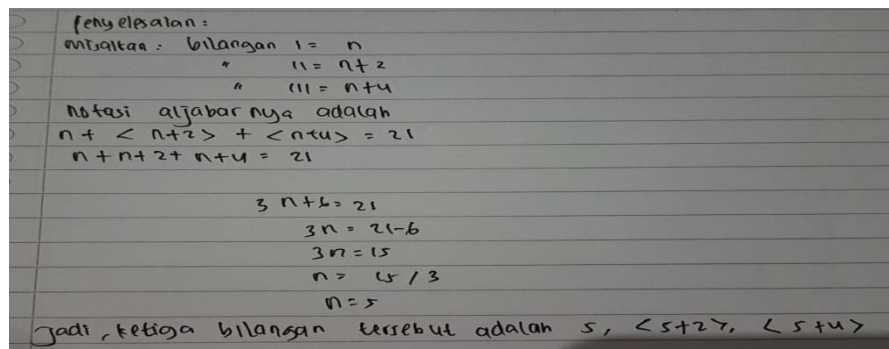 Penyelesaian :
misalkan : bilangan I = n
" II = n+2
" III = n+4
Notasi aljabar nya adalah
n + < n+2> + <n+4> = 21
n + n+ 2+ n+4 = 21
3 n+6 = 21
3n = 21-6
3n = 15
n = 15 / 3
n = 5
Jadi, ketiga bilangan tersebut adalah 5, <5+2>, <5+4>